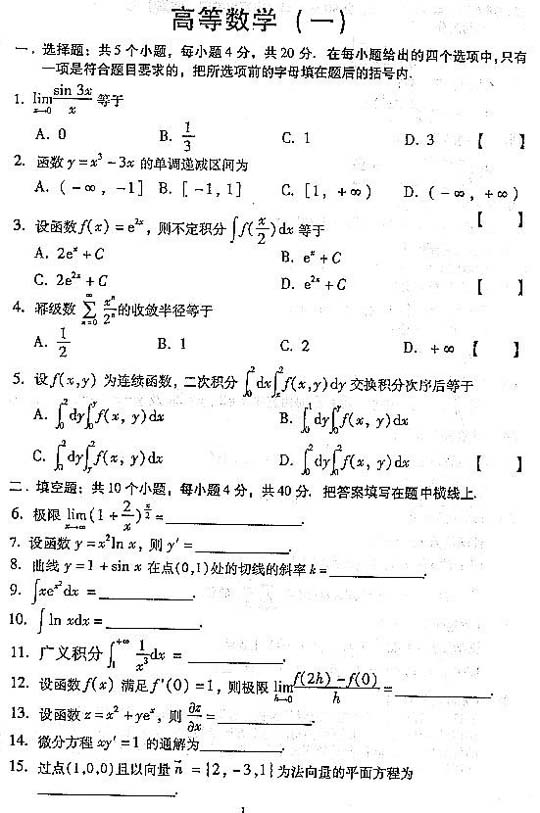 高等数学 (一)
一. 选择题: 共5个小题, 每小题4分, 共20分. 在每小题给出的四个选项中, 只有
一项是符合题目要求的, 把所选项前的字母填在题后的括号内.
1. lim_{x→0} sin 3x / x 等于
A. 0 B. 1/3 C. 1 D. 3 【 】
2. 函数 y = x³ - 3x 的单调递减区间为
A. (-∞, -1] B. [-1, 1] C. [1, +∞) D. (-∞, +∞)
【 】
3. 设函数 f(x) = e^{2x}, 则不定积分 ∫f(x/2)dx 等于
A. 2e^x + C B. e^x + C
C. 2e^{2x} + C D. e^{2x} + C 【 】
4. 幂级数 ∑_{n=0}^{∞} x^n/2^n 的收敛半径等于
A. 1/2 B. 1 C. 2 D. +∞ 【 】
5. 设 f(x,y) 为连续函数, 二次积分 ∫_0^2 dx ∫_x^2 f(x,y)dy 交换积分次序后等于
A. ∫_0^2 dy ∫_0^y f(x, y)dx B. ∫_0^1 dy ∫_0^y f(x, y)dx
C. ∫_0^2 dy ∫_y^2 f(x, y)dx D. ∫_0^2 dy ∫_0^2 f(x, y)dx 【 】
二. 填空题: 共10个小题, 每小题4分, 共40分. 把答案填写在题中横线上.
6. 极限 lim_{x→∞} (1 + 2/x)^{x/2} = ____.
7. 设函数 y = x²ln x, 则 y' = ____.
8. 曲线 y = 1 + sin x 在点(0,1)处的切线的斜率 k = ____.
9. ∫xe^{x²}dx = ____.
10. ∫ln xdx = ____.
11. 广义积分 ∫_1^{+∞} 1/x³ dx = ____.
12. 设函数 f(x) 满足 f'(0) = 1, 则极限 lim_{h→0} f(2h) - f(0) / h = ____.
13. 设函数 z = x² + ye^x, 则 ∂z/∂x = ____.
14. 微分方程 xy' = 1 的通解为____.
15. 过点(1,0,0)且以向量 n⃗ = {2, -3, 1} 为法向量的平面方程为
____.
1